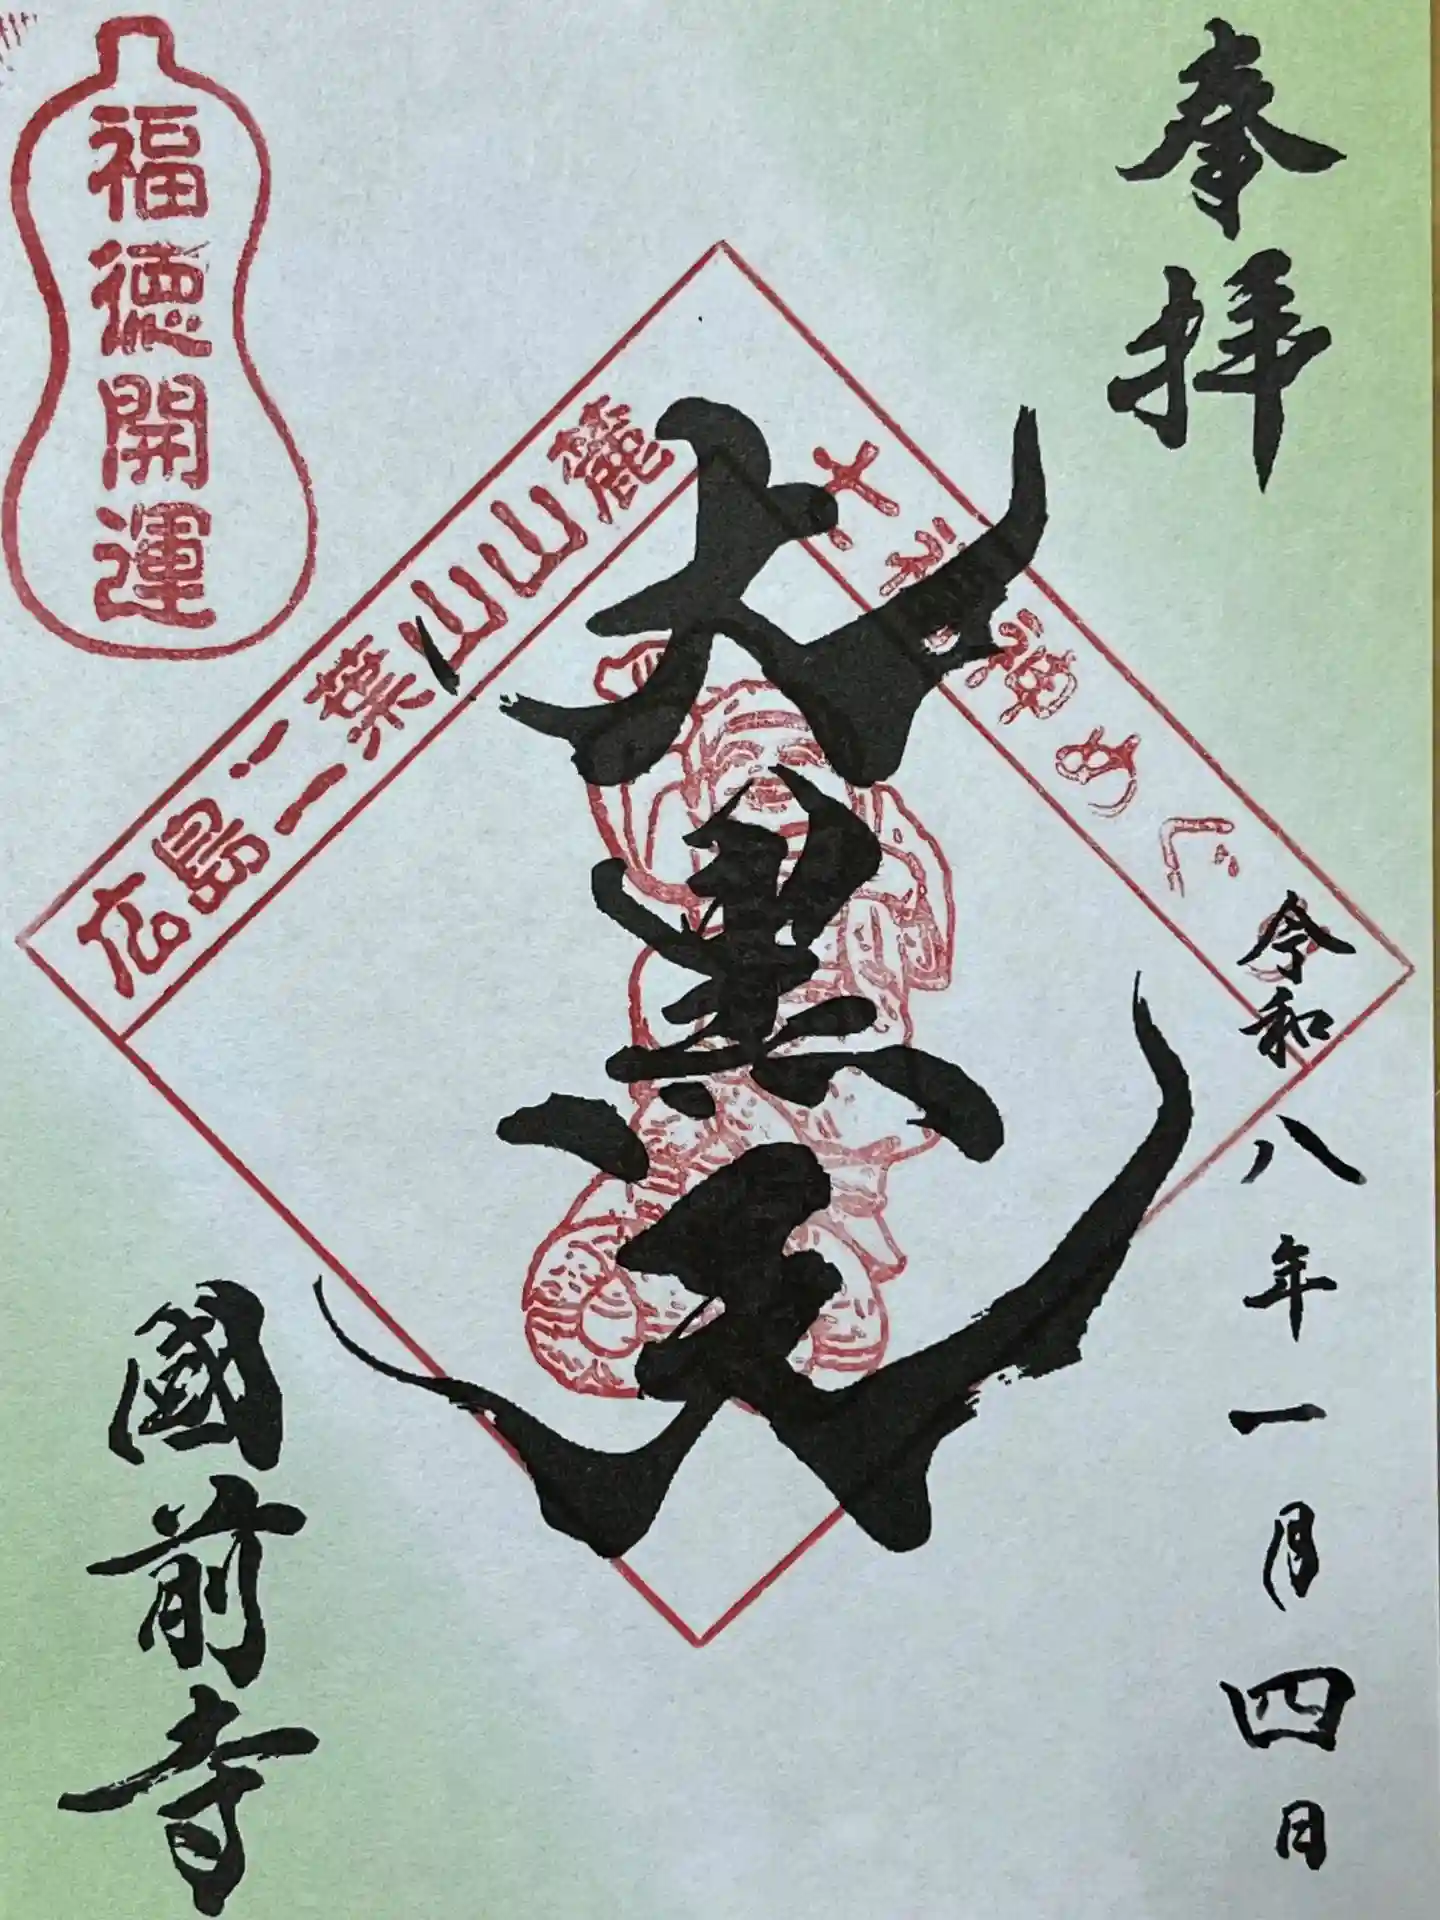 奉拝
令和八年一月四日
大黒天
七福神めぐり
広島二葉山山麓
福徳開運
國前寺